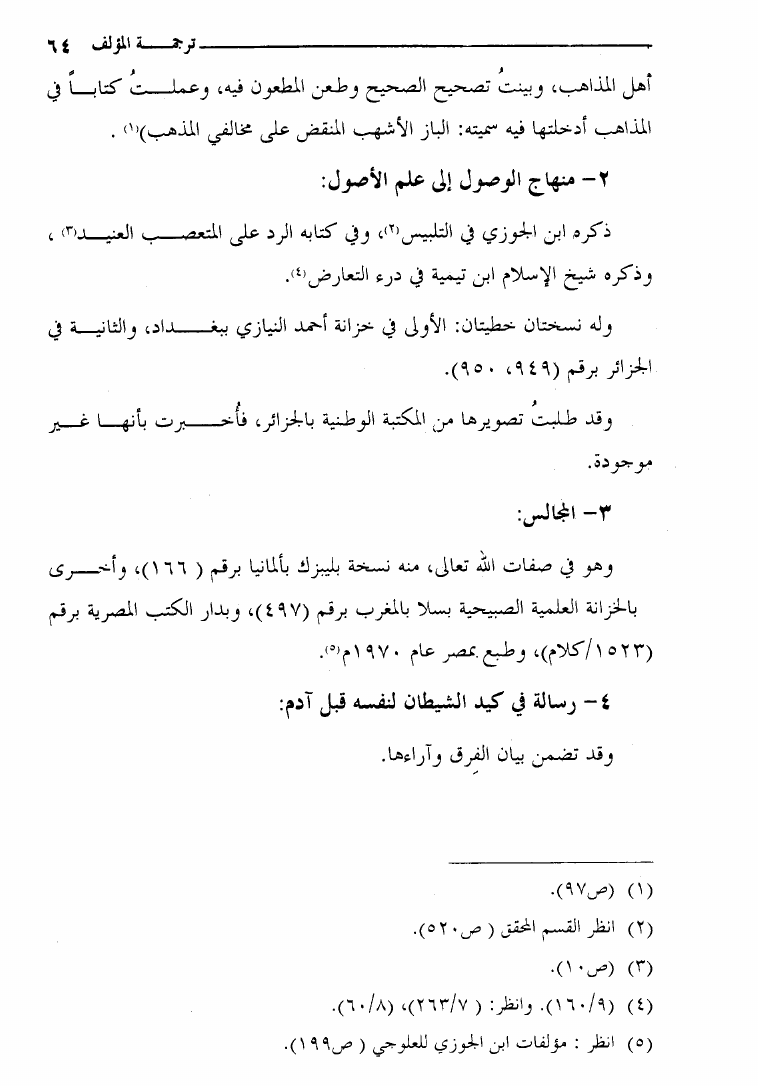 ترجمة المؤلف ٦٤
أهل المذاهب، وبينتُ تصحيح الصحيح وطعن المطعون فيه، وعملتُ كتاباً في
المذاهب أدخلتها فيه سميته: الباز الأشهب المنقض على مخالفي المذهب)(١) .
٢- منهاج الوصول إلى علم الأصول:
ذكره ابن الجوزي في التلبيس(٢)، وفي كتابه الرد على المتعصب العنيد(٣) ،
وذكره شيخ الإسلام ابن تيمية في درء التعارض(٤).
وله نسختان خطيتان: الأولى في خزانة أحمد النيازي ببغداد، والثانية في
الجزائر برقم (٩٤٩، ٩٥٠).
وقد طلبتُ تصويرها من المكتبة الوطنية بالجزائر، فأُخبرت بأنها غير
موجودة.
٣- المجالس:
وهو في صفات الله تعالى، منه نسخة بليبزك بألمانيا برقم ( ١٦٦)، وأخرى
بالخزانة العلمية الصبيحية بسلا بالمغرب برقم (٤٩٧)، وبدار الكتب المصرية برقم
(١٥٢٣/كلام)، وطبع بمصر عام ١٩٧٠م(٥).
٤- رسالة في كيد الشيطان لنفسه قبل آدم:
وقد تضمن بيان الفِرق وآراءها.
(١) (ص٩٧).
(٢) انظر القسم المحقق ( ص٥٢٠).
(٣) (ص١٠).
(٤) (١٦٠/٩). وانظر: ( ٢٦٣/٧)، (٦٠/٨).
(٥) انظر : مؤلفات ابن الجوزي للعلوجي ( ص١٩٩).